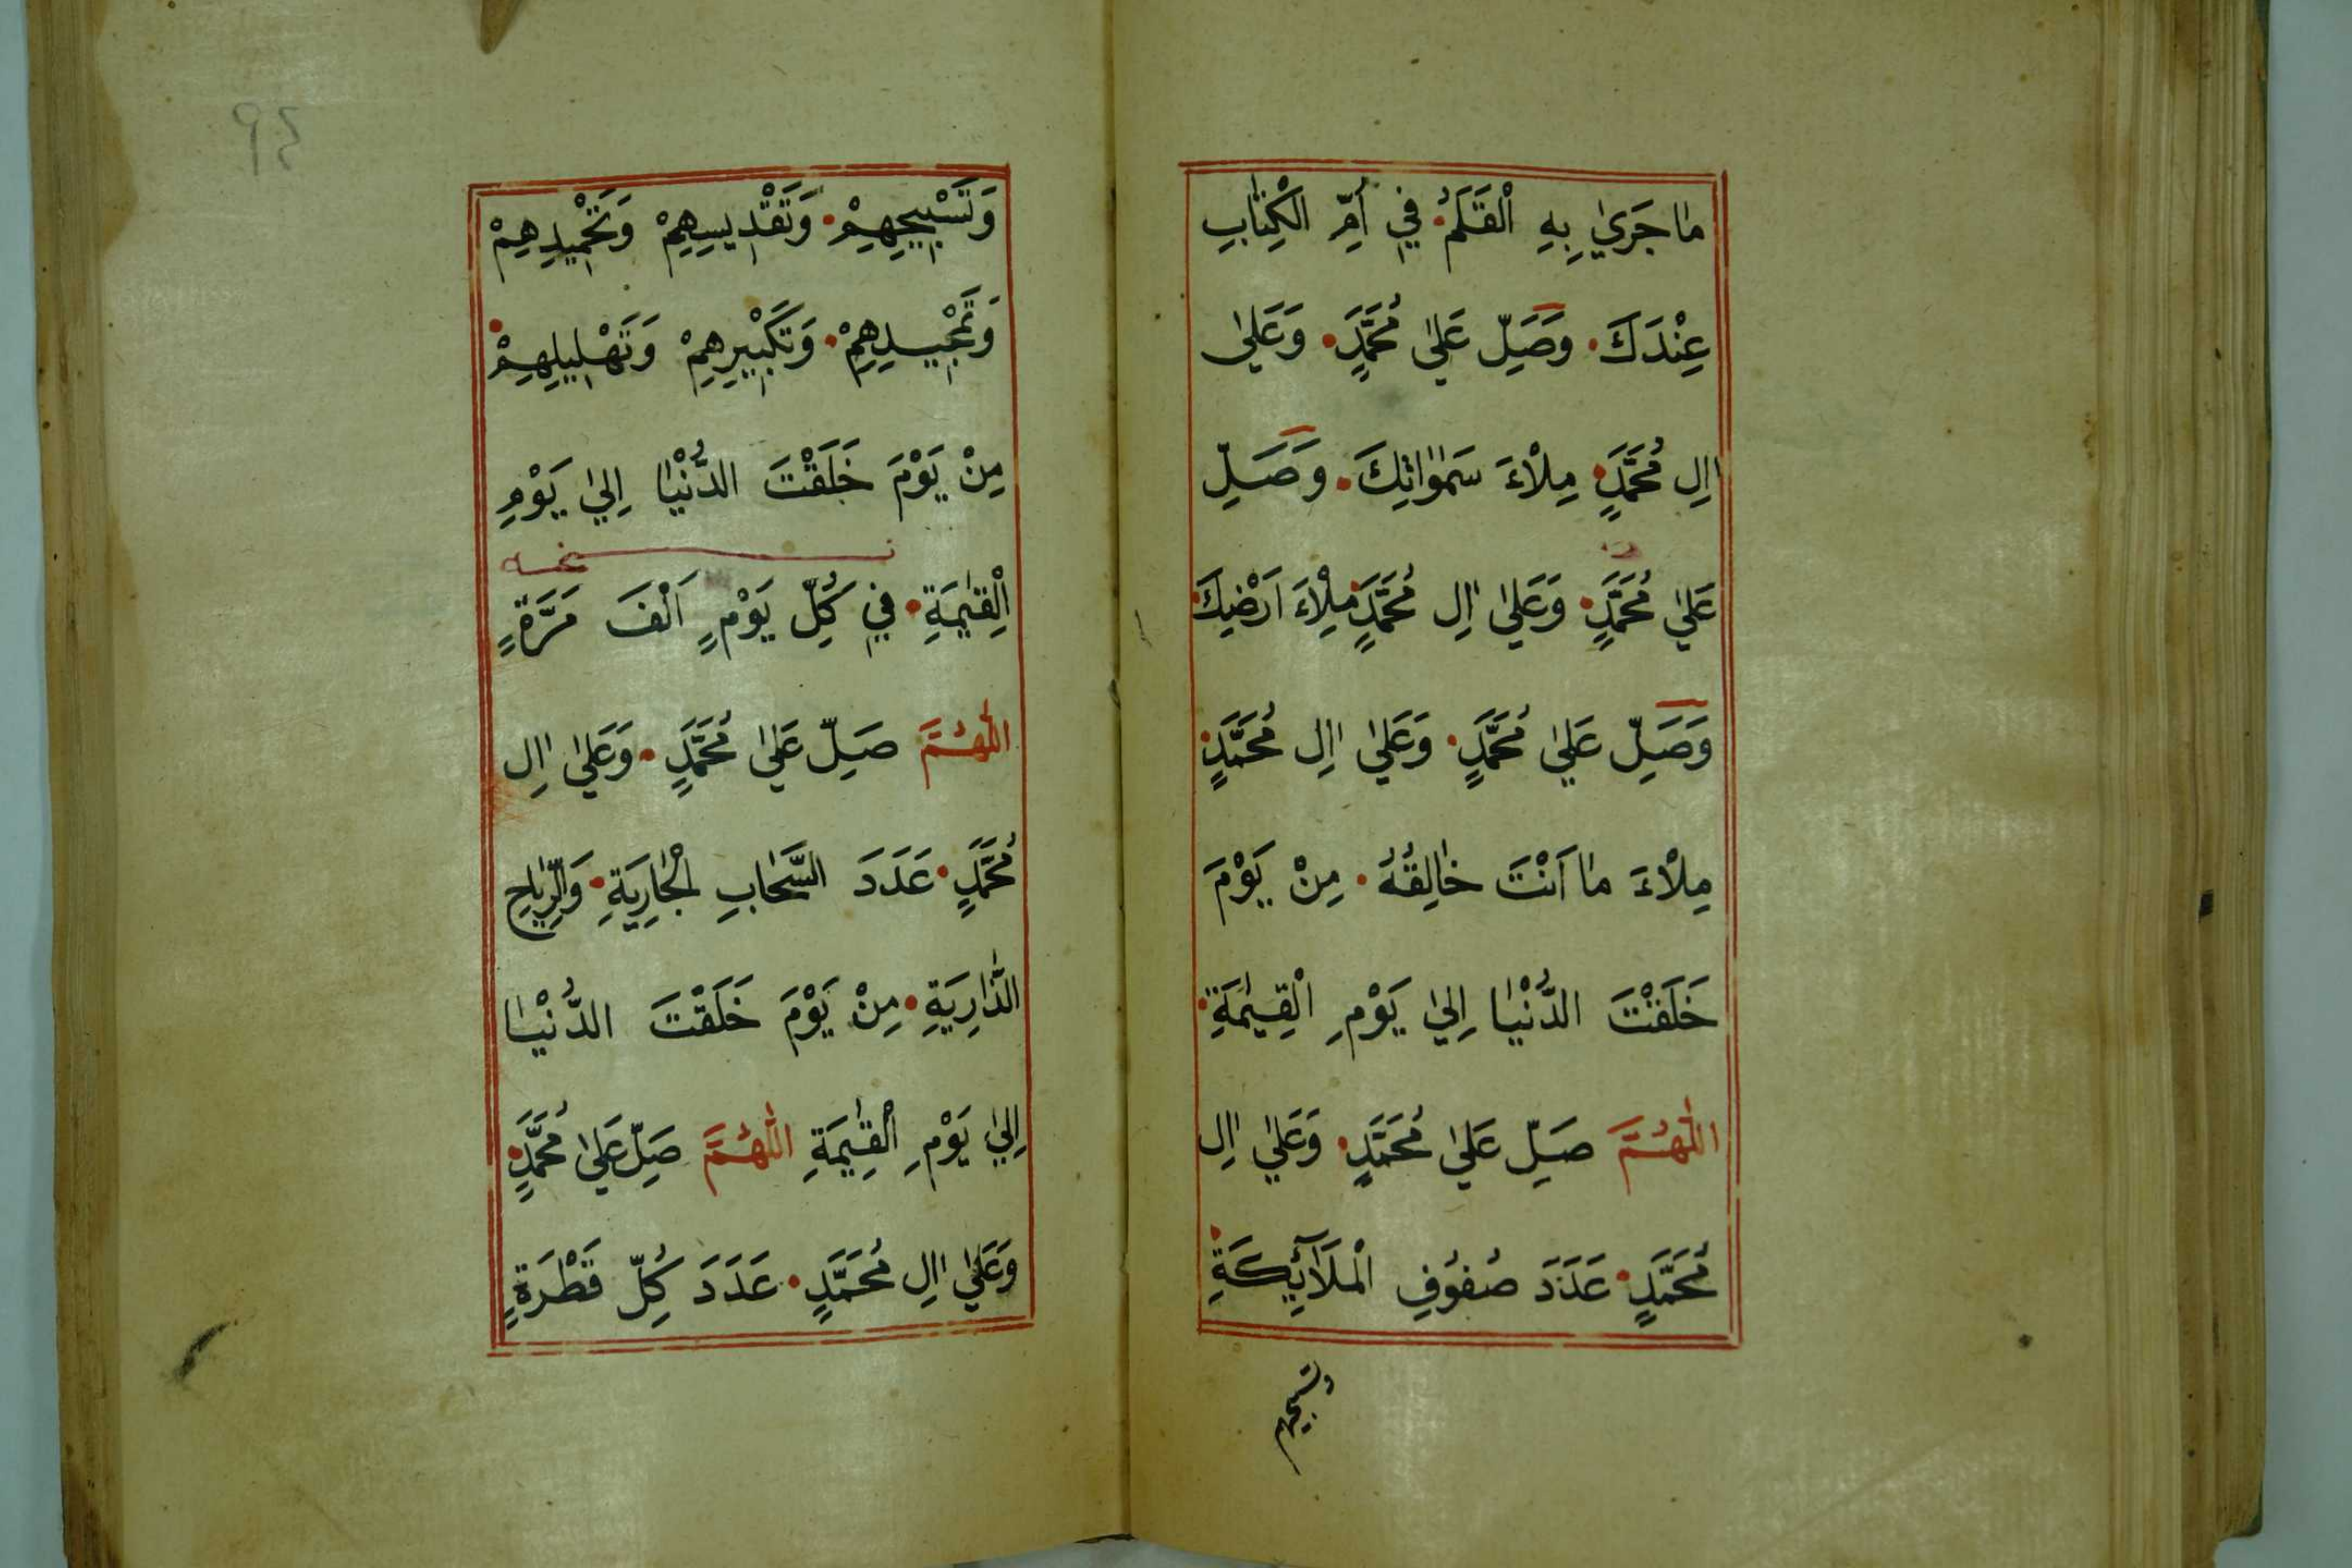 مَا جَرَىٰ بِهِ الْقَلَمُ. فِي اُمِّ الْكِتَابِ
عِنْدَكَ. وَصَلِّ عَلَىٰ مُحَمَّدٍ. وَعَلَىٰ
اٰلِ مُحَمَّدٍ. مِلْاءَ سَمٰوَاتِكَ. وَصَلِّ
عَلَىٰ مُحَمَّدٍ. وَعَلَىٰ اٰلِ مُحَمَّدٍ. مِلْاءَ اَرْضِكَ.
وَصَلِّ عَلَىٰ مُحَمَّدٍ. وَعَلَىٰ اٰلِ مُحَمَّدٍ.
مِلْاءَ مَا اَنْتَ خَالِقُهُ. مِنْ يَوْمَ
خَلَقْتَ الدُّنْيَا اِلَىٰ يَوْمِ الْقِيٰمَةِ.
اَللّٰهُمَّ صَلِّ عَلَىٰ مُحَمَّدٍ. وَعَلَىٰ اٰلِ
مُحَمَّدٍ. عَدَدَ صُفُوفِ الْمَلَآئِكَةِ.
وتسبيحهم
٩٤
وَتَسْبِيحِهِمْ. وَتَقْدِيسِهِمْ وَتَحْمِيدِهِمْ
وَتَمْجِيدِهِمْ. وَتَكْبِيرِهِمْ وَتَهْلِيلِهِمْ.
مِنْ يَوْمَ خَلَقْتَ الدُّنْيَا اِلَىٰ يَوْمِ
الْقِيٰمَةِ. فِي كُلِّ يَوْمٍ اَلْفَ مَرَّةٍ
اَللّٰهُمَّ صَلِّ عَلَىٰ مُحَمَّدٍ. وَعَلَىٰ اٰلِ
مُحَمَّدٍ. عَدَدَ السَّحَابِ الْجَارِيَةِ. وَالرِّيَاحِ
الذَّارِيَةِ. مِنْ يَوْمَ خَلَقْتَ الدُّنْيَا
اِلَىٰ يَوْمِ الْقِيٰمَةِ اَللّٰهُمَّ صَلِّ عَلَىٰ مُحَمَّدٍ.
وَعَلَىٰ اٰلِ مُحَمَّدٍ. عَدَدَ كُلِّ قَطْرَةٍ